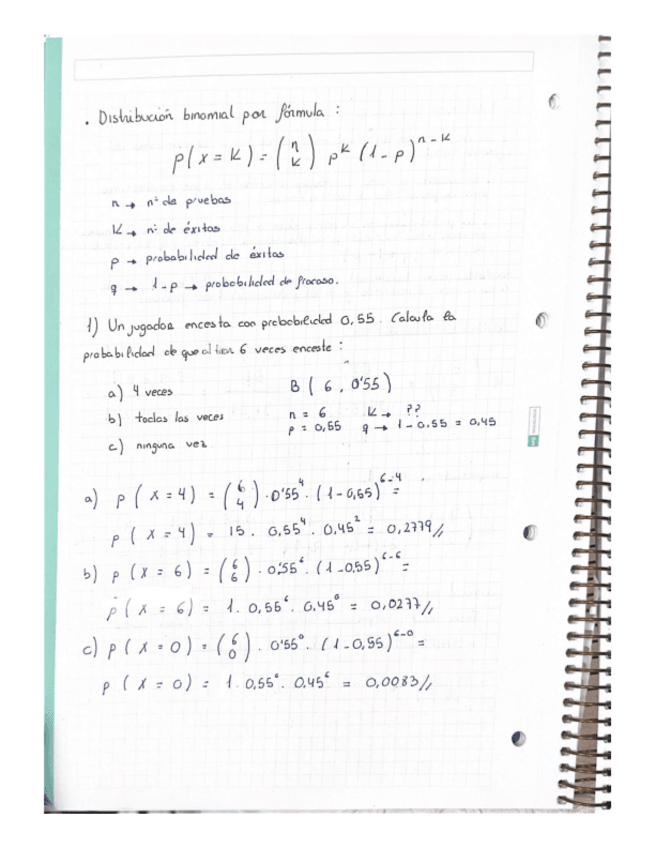 . Distribución binomial por fórmula :
p(x = k) = (n k) p^k (1 - p)^n - k
n → nº de pruebas
k → nº de éxitos
p → probabilidad de éxitos
q → 1 - p → probabilidad de fracaso.
1) Un jugador encesta con probabilidad 0,55. Calcula la
probabilidad de que al tirar 6 veces enceste :
a) 4 veces B ( 6 , 0'55 )
b) todas las veces n = 6 k → ??
p = 0,55 q → 1 - 0.55 = 0,45
c) ninguna vez
a) p ( x = 4 ) = (6 4) . 0'55^4 . (1 - 0,55)^6-4 =
p ( x = 4 ) = 15 . 0,55^4 . 0,45^2 = 0,2779//
b) p ( x = 6 ) = (6 6) . 0'55^6 . (1 - 0,55)^6-6 =
p ( x = 6 ) = 1 . 0,55^6 . 0.45^0 = 0,0277//
c) p ( x = 0 ) = (6 0) . 0'55^0 . (1 - 0,55)^6-0 =
p ( x = 0 ) = 1 . 0,55^0 . 0,45^6 = 0,0083//